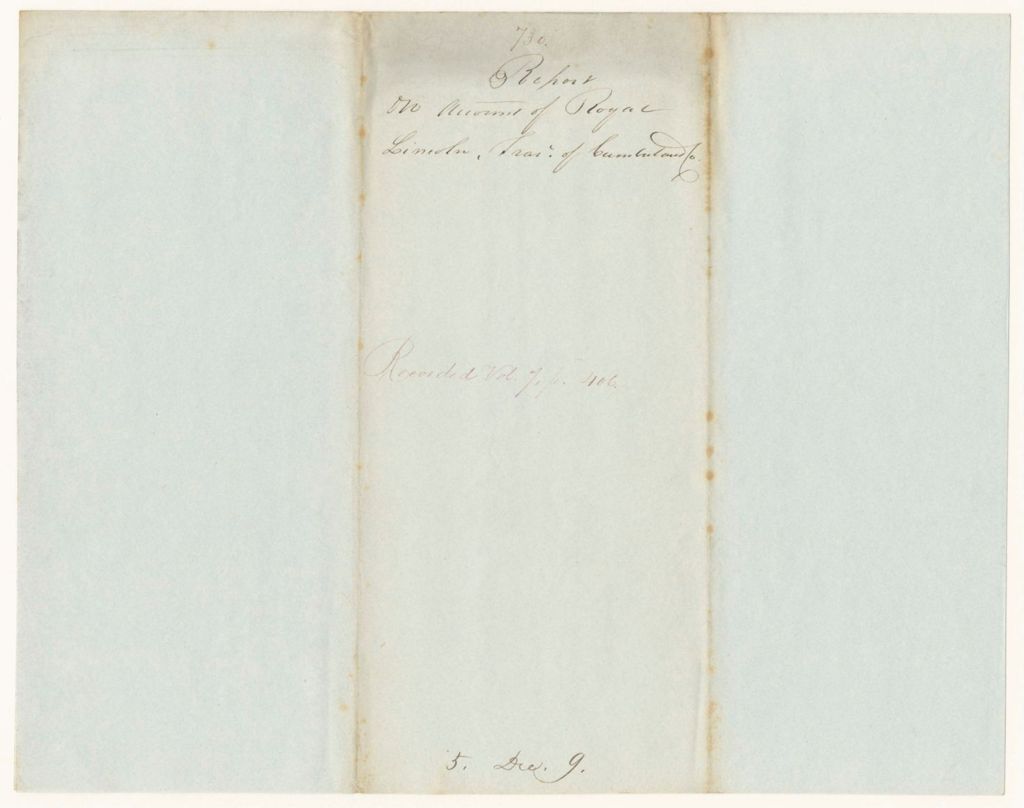 730.
Report
On Account of Royal
Lincoln, Trasr. of Cumberland Co.
Recorded Vol. 7, p. 406
5. Dec. 9.